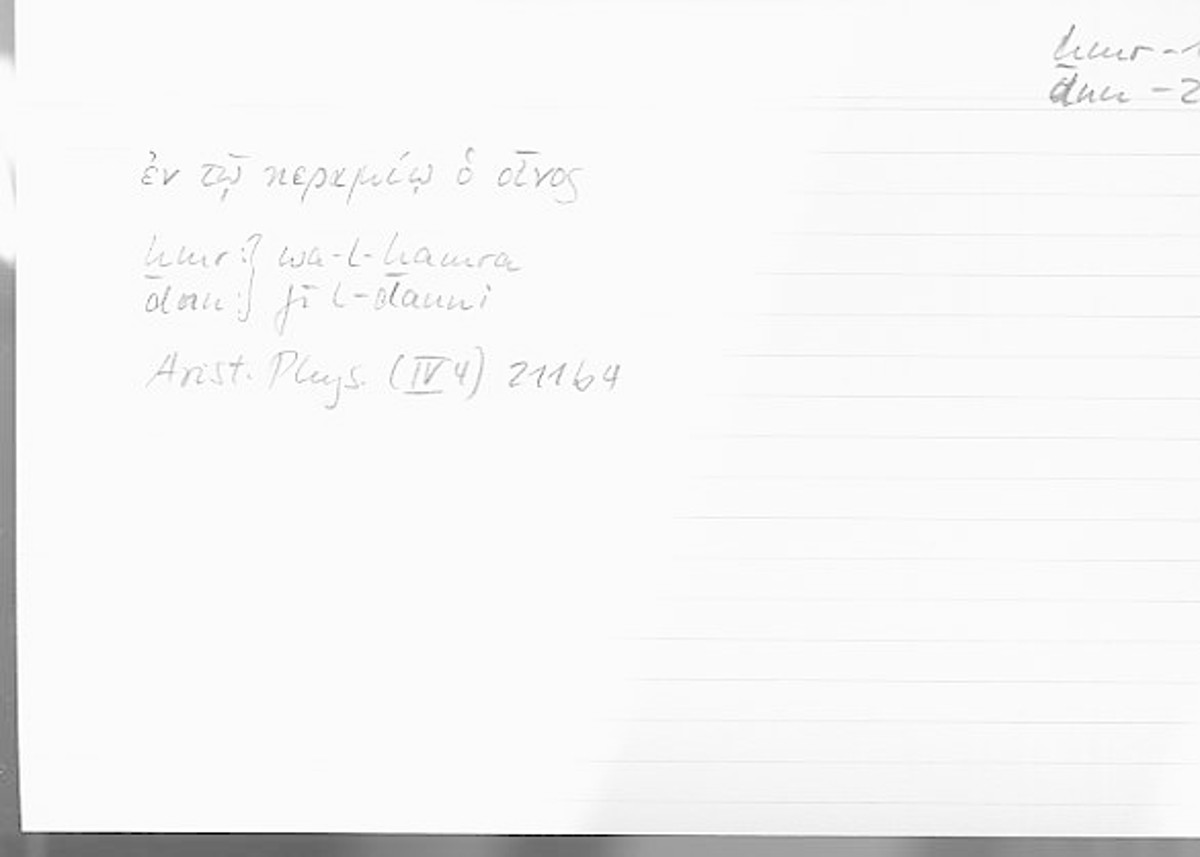 ḫmr-1
dnn -2
ἐν τῷ κεραμίῳ ὁ οἶνος
ḫmr: } wa-l-ḫamra
dnn: } fī l-danni
Arist. Phys. (IV 4) 211b4